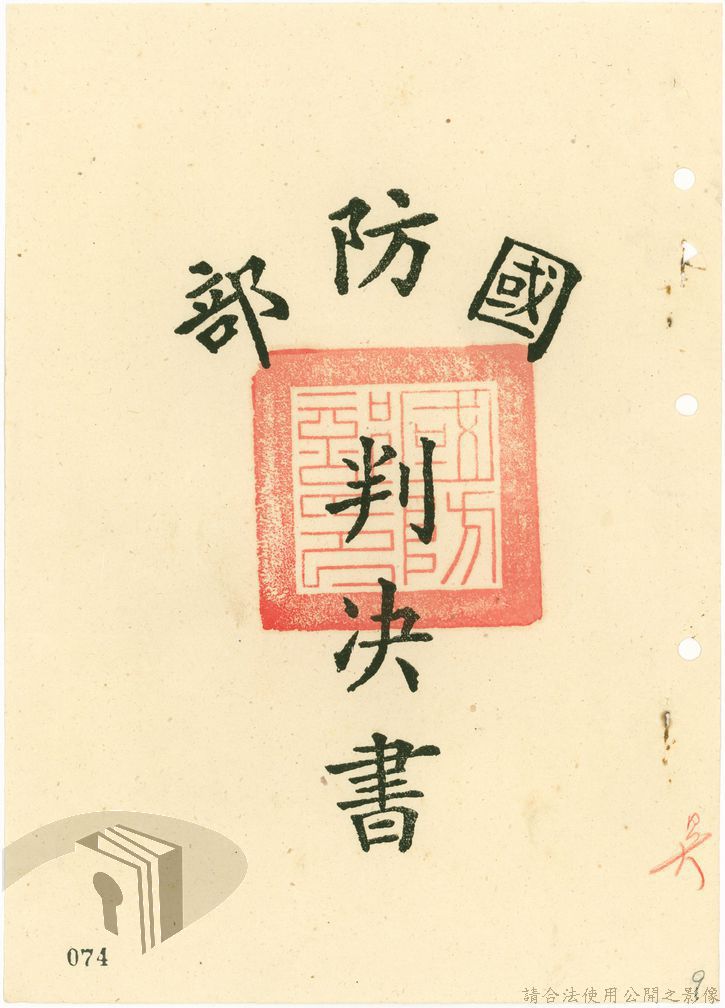 國防部
判決書
國防部印
吳
074
9
請合法使用公開之影像